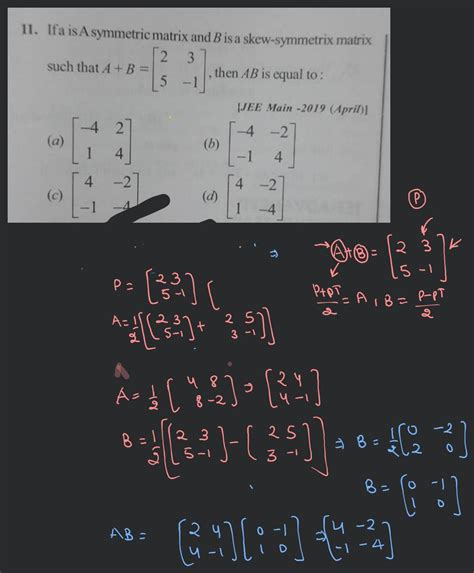 11. If a is A symmetric matrix and B is a skew-symmetrix matrix
such that A + B = [2 3; 5 −1], then AB is equal to :
[JEE Main -2019 (April)]
(a) [−4 2; 1 4] (b) [−4 −2; −1 4]
(c) [4 −2; −1 −4] (d) [4 −2; 1 −4]
P
→ A+B = [2 3; 5 -1]
P = [2 3; 5 -1] [
P+Pᵀ/2 = A, B = P-Pᵀ/2
A = 1/2 [[2 3; 5 -1] + 2 5; 3 -1]]
A = 1/2 [4 8; 8 -2] ⇒ [2 4; 4 -1]
B = 1/2 [[2 3; 5 -1] - [2 5; 3 -1]] ⇒ B = 1/2 [0 -2; 2 0]
B = [0 -1; 1 0]
AB = [2 4; 4 -1] [0 -1; 1 0] ⇒ [4 -2; -1 -4]